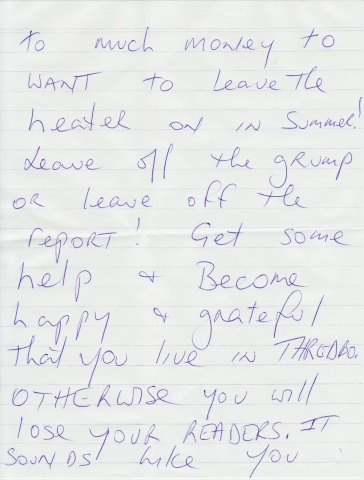 to much money to
WANT to leave the
heater on in Summer!
Leave off the grump
or leave off the
report! Get some
help & Become
happy & grateful
that you live in THREDBO.
OTHERWISE you will
lose YOUR READERS. IT
SOUNDS like you